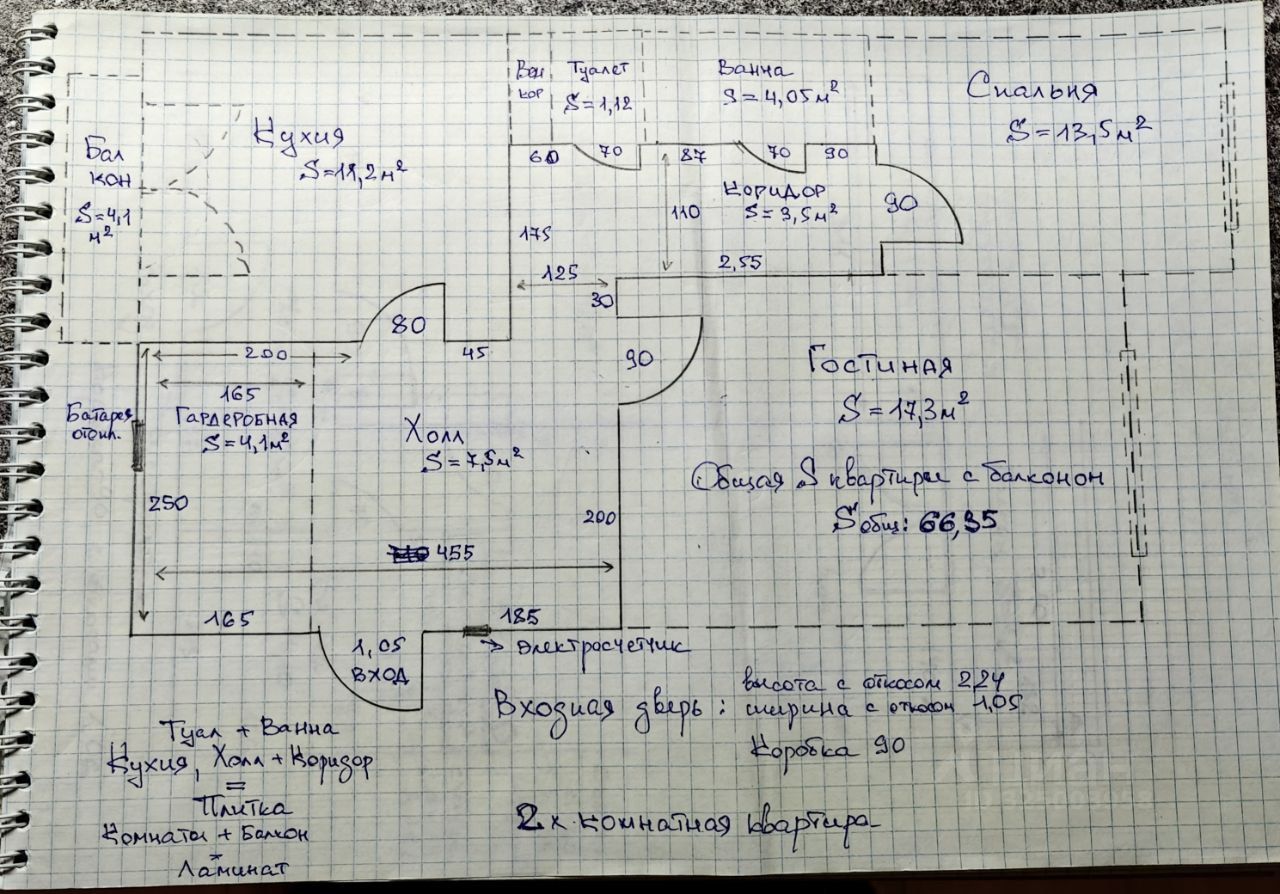 Вен
кор
Туалет
S=1,12
Ванна
S=4,05м²
Спальня
S=13,5м²
Кухня
S=11,2м²
Бал
кон
S=4,1
м²
60
70
87
70
90
Коридор
S=3,5м²
110
90
175
2,55
125
30
80
90
200
45
165
Гардеробная
S=4,1м²
Батарея
отопл.
Холл
S=7,5м²
Гостиная
S=17,3м²
250
200
Общая S квартиры с балконом
Sобщ: 66,35
455
165
185
1,05
вход
→ электросчетчик
Входная дверь:
высота с откосом 2,24
ширина с откосом 1,05
Коробка 90
Туал + Ванна
Кухня, Холл + Коридор
=
Плитка
Комнаты + Балкон
=
Ламинат
2х комнатная квартира